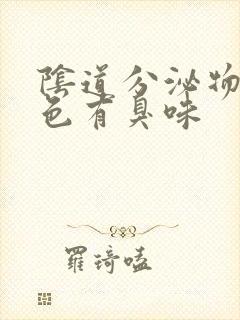 陰道分泌物
色有臭味
羅琦嗑